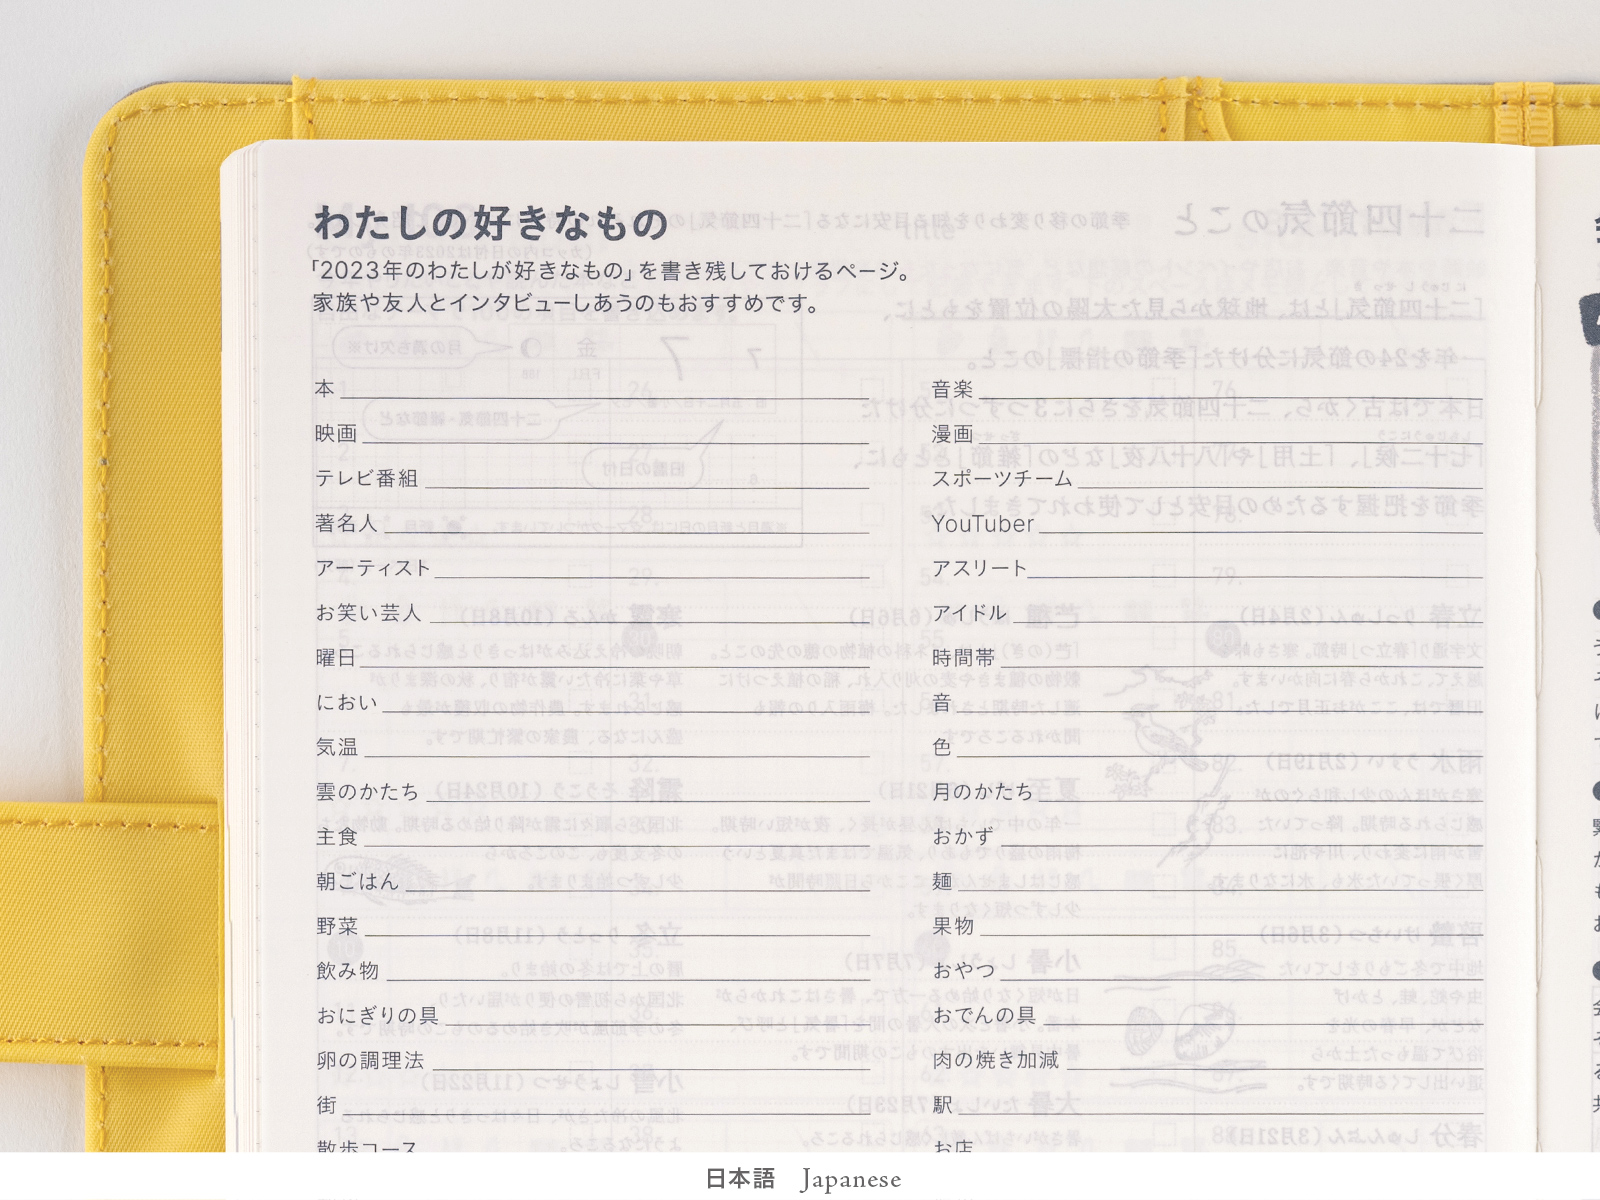 わたしの好きなもの
「2023年のわたしが好きなもの」を書き残しておけるページ。
家族や友人とインタビューしあうのもおすすめです。
本
映画
テレビ番組
著名人
アーティスト
お笑い芸人
曜日
におい
気温
雲のかたち
主食
朝ごはん
野菜
飲み物
おにぎりの具
卵の調理法
街
散歩コース
音楽
漫画
スポーツチーム
YouTuber
アスリート
アイドル
時間帯
音
色
月のかたち
おかず
麺
果物
おやつ
おでんの具
肉の焼き加減
駅
お店
日本語 Japanese